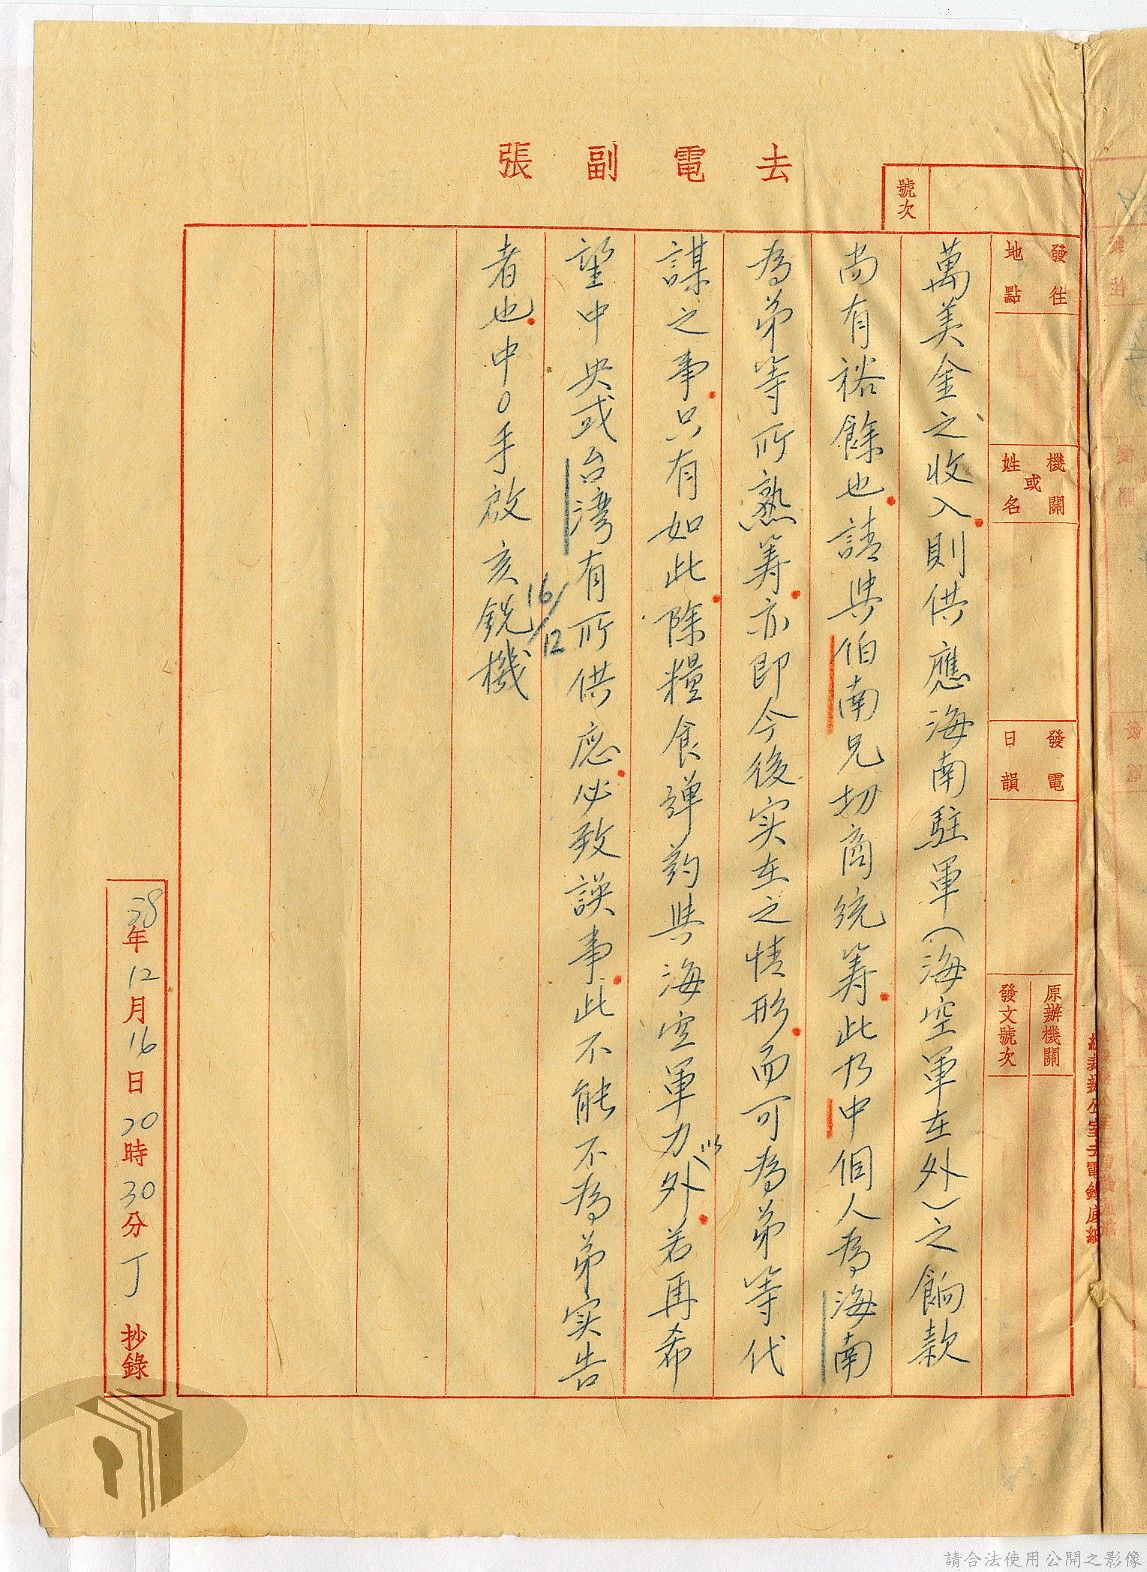 去電副張
號次
發往地點
機關或姓名
發電日韻
原辦機關
發文號次
萬美金之收入則供應海南駐軍(海空軍在外)之餉款
尚有裕餘也請與伯南兄切商統籌此乃中個人為海南
為弟等所熟籌亦即今後实在之情形而可為弟等代
謀之事只有如此除糧食彈葯與海空軍力以外若再希
望中央或台灣有所供應必致誤事此不能不為弟实告
者也中0手啟亥銑機
16/12
38年12月16日20時30分丁抄錄
請合法使用公開之影像